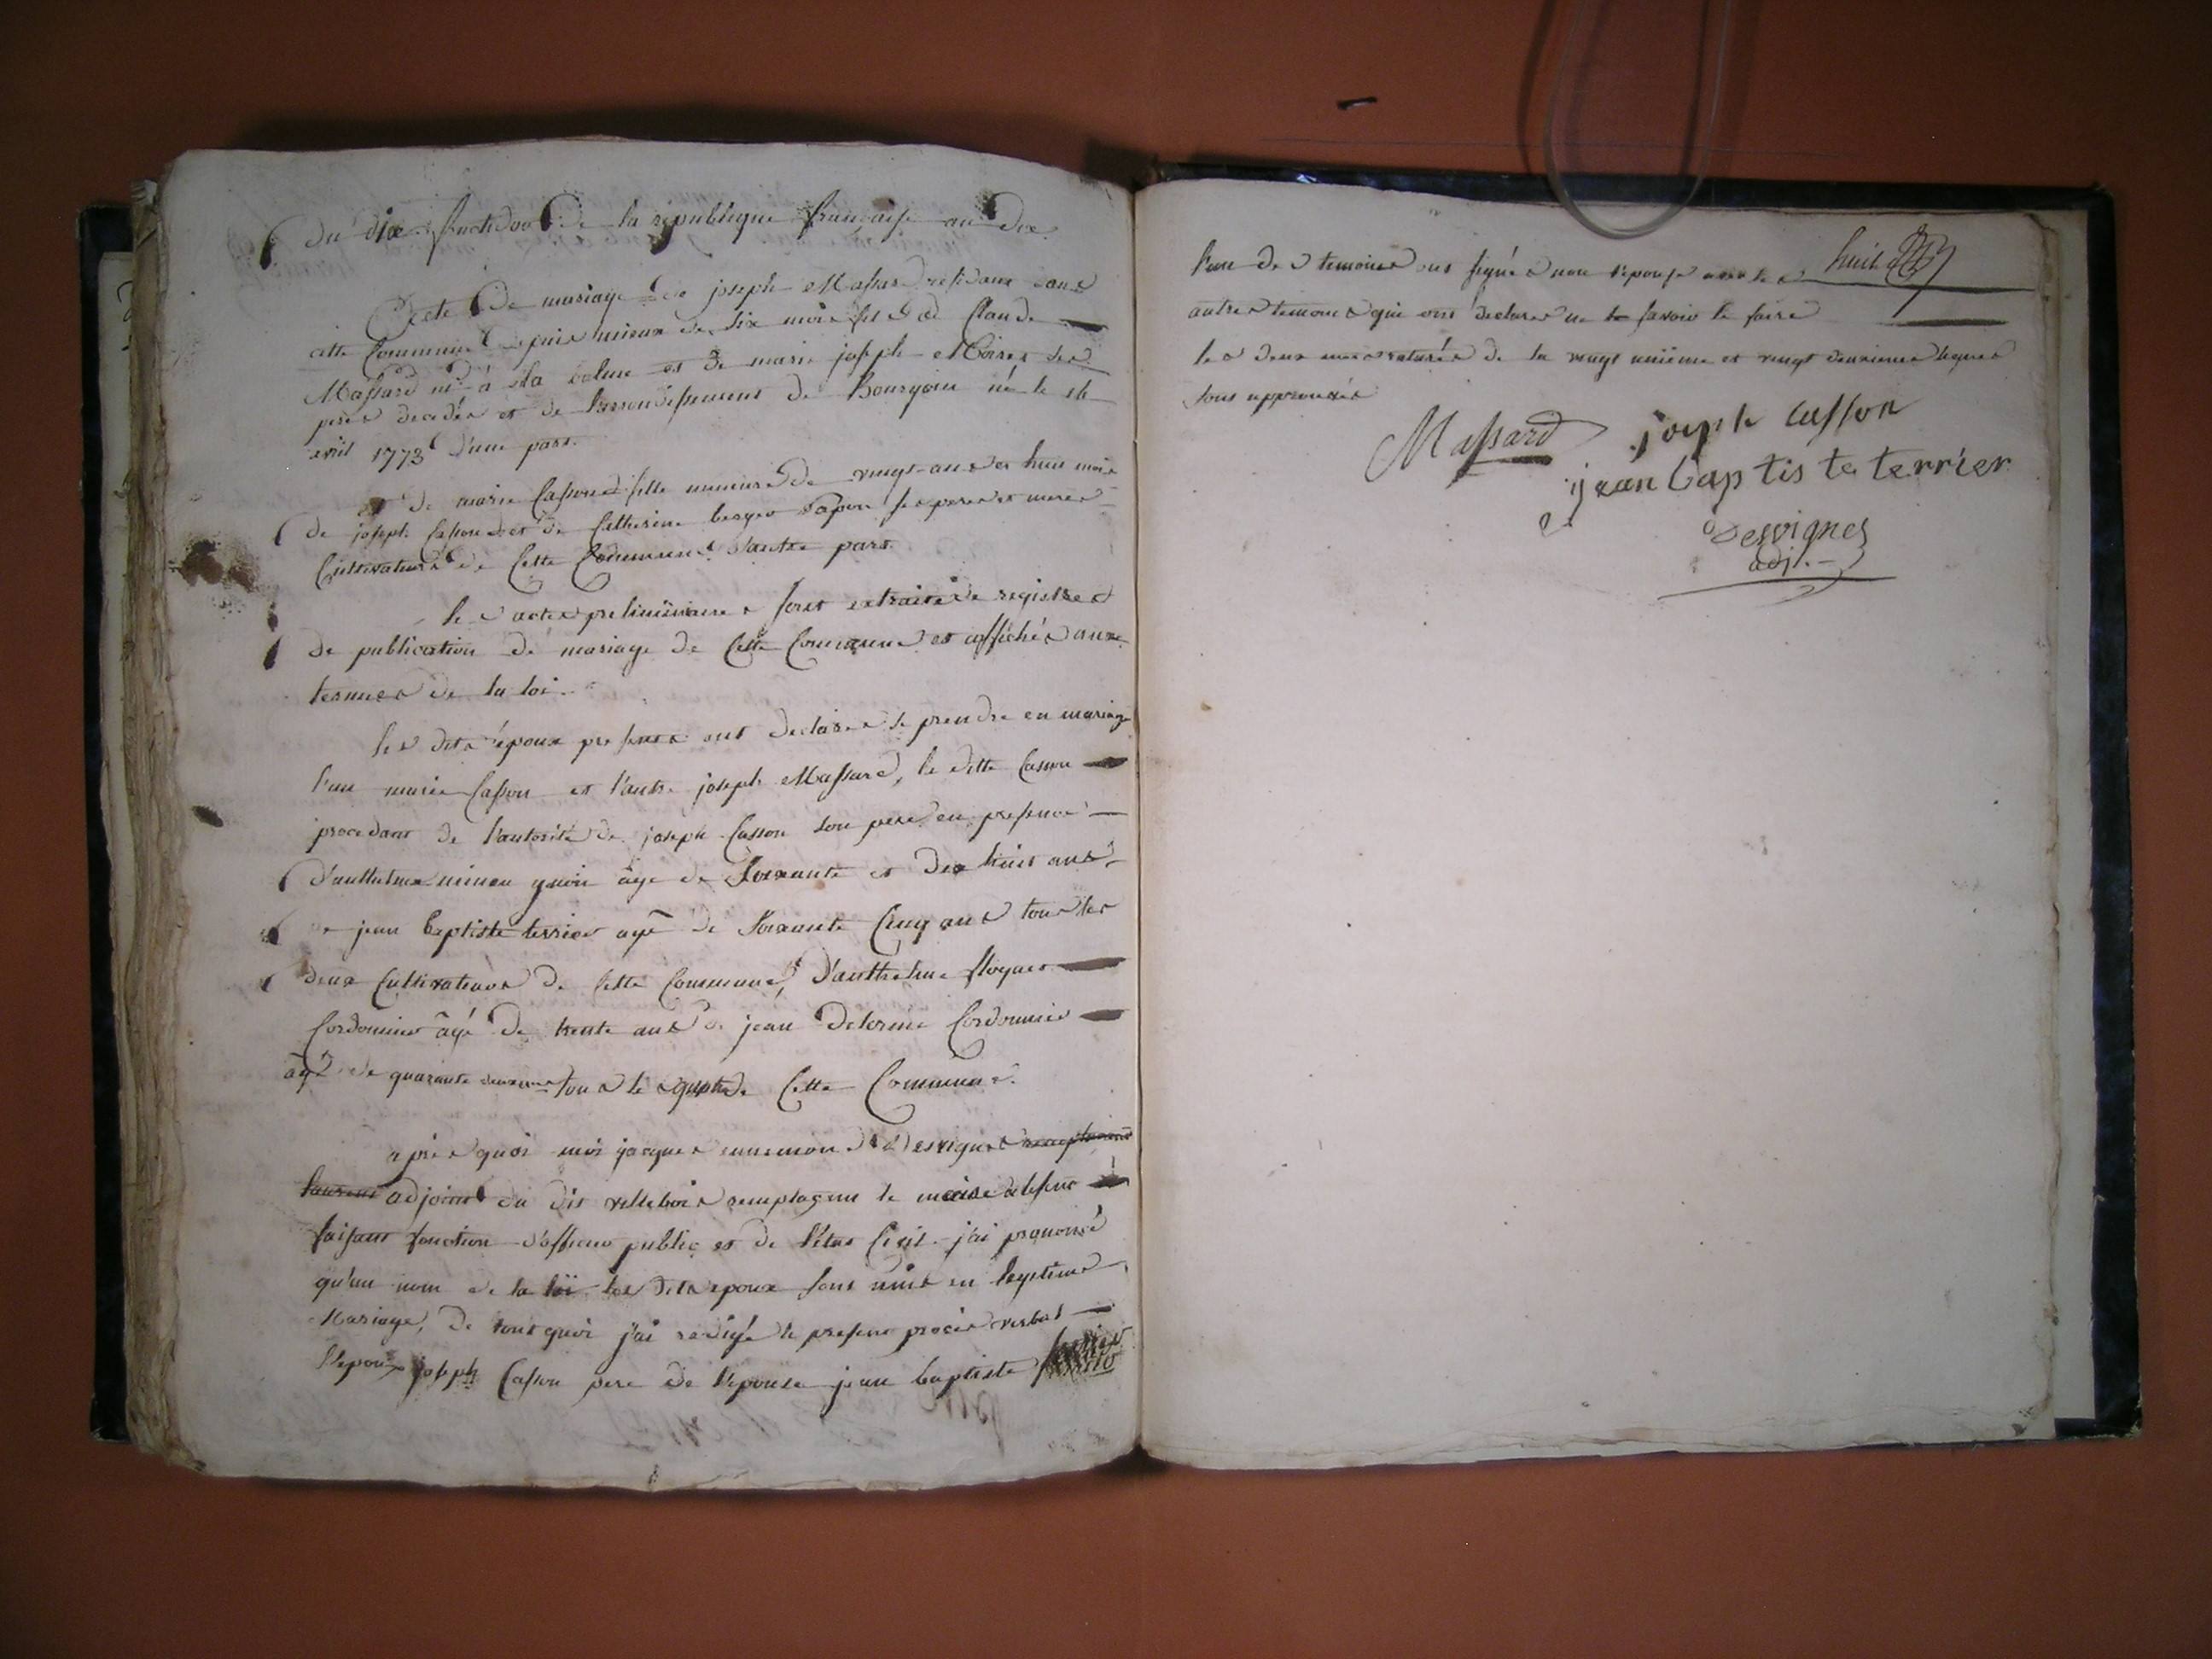 du dix fructidor de la république française an dix
Acte de mariage de joseph Massard residant dans
cette Commune depuis mieux de six mois fils de Claude
Massard né à la balme et de marie joseph ses
peres decedés et de l'arrondissement de Bourgoin né le 16
avril 1773 d'une part.
et de marie Casson fille mineure de vingt ans et huit mois
de joseph Casson et de Catherine sapon ses pere et mere
Cultivateurs de Cette Commune d'autre part
les actes preliminaires sont extraits de registres
de publication de mariage de Cette Commune et affichés aux
termes de la loi.
les dits époux presents ont declarés se prendre en mariage
l'un marie Casson et l'autre joseph Massard, le ditte Casson
procedant de l'autorité de joseph Casson son père en presence
d'anthelme âge de soixante et dix huit ans
de jean baptiste terrier agé de soixante Cinq ans tous les
deux Cultivateurs de Cette Commune, d'anthelme
Cordonnier âgé de trente ans de jean Cordonnier
âgé de quarante tous le quatre de Cette Commune.
après quoi moi jacques Desvignes
adjoint du dit villebois remplaçant le maire absent
faisant fonction d'officier public et de l'état Civil j'ai prononcé
qu'au nom de la loi les dits epoux sont unis en legitime
Mariage, de tout quoi j'ai redigé le present procès verbal
l'epoux joseph Casson pere de l'epouse jean baptiste terrier
l'un des temoins ont signés non l'epouse les
autres temoins qui ont declarés ne le savoir le faire
les deux mots raturés de la vingt unième et vingt deuxieme lignes
sont approuvés
Massard joseph casson
jean baptiste terrier
Desvignes
adjt.